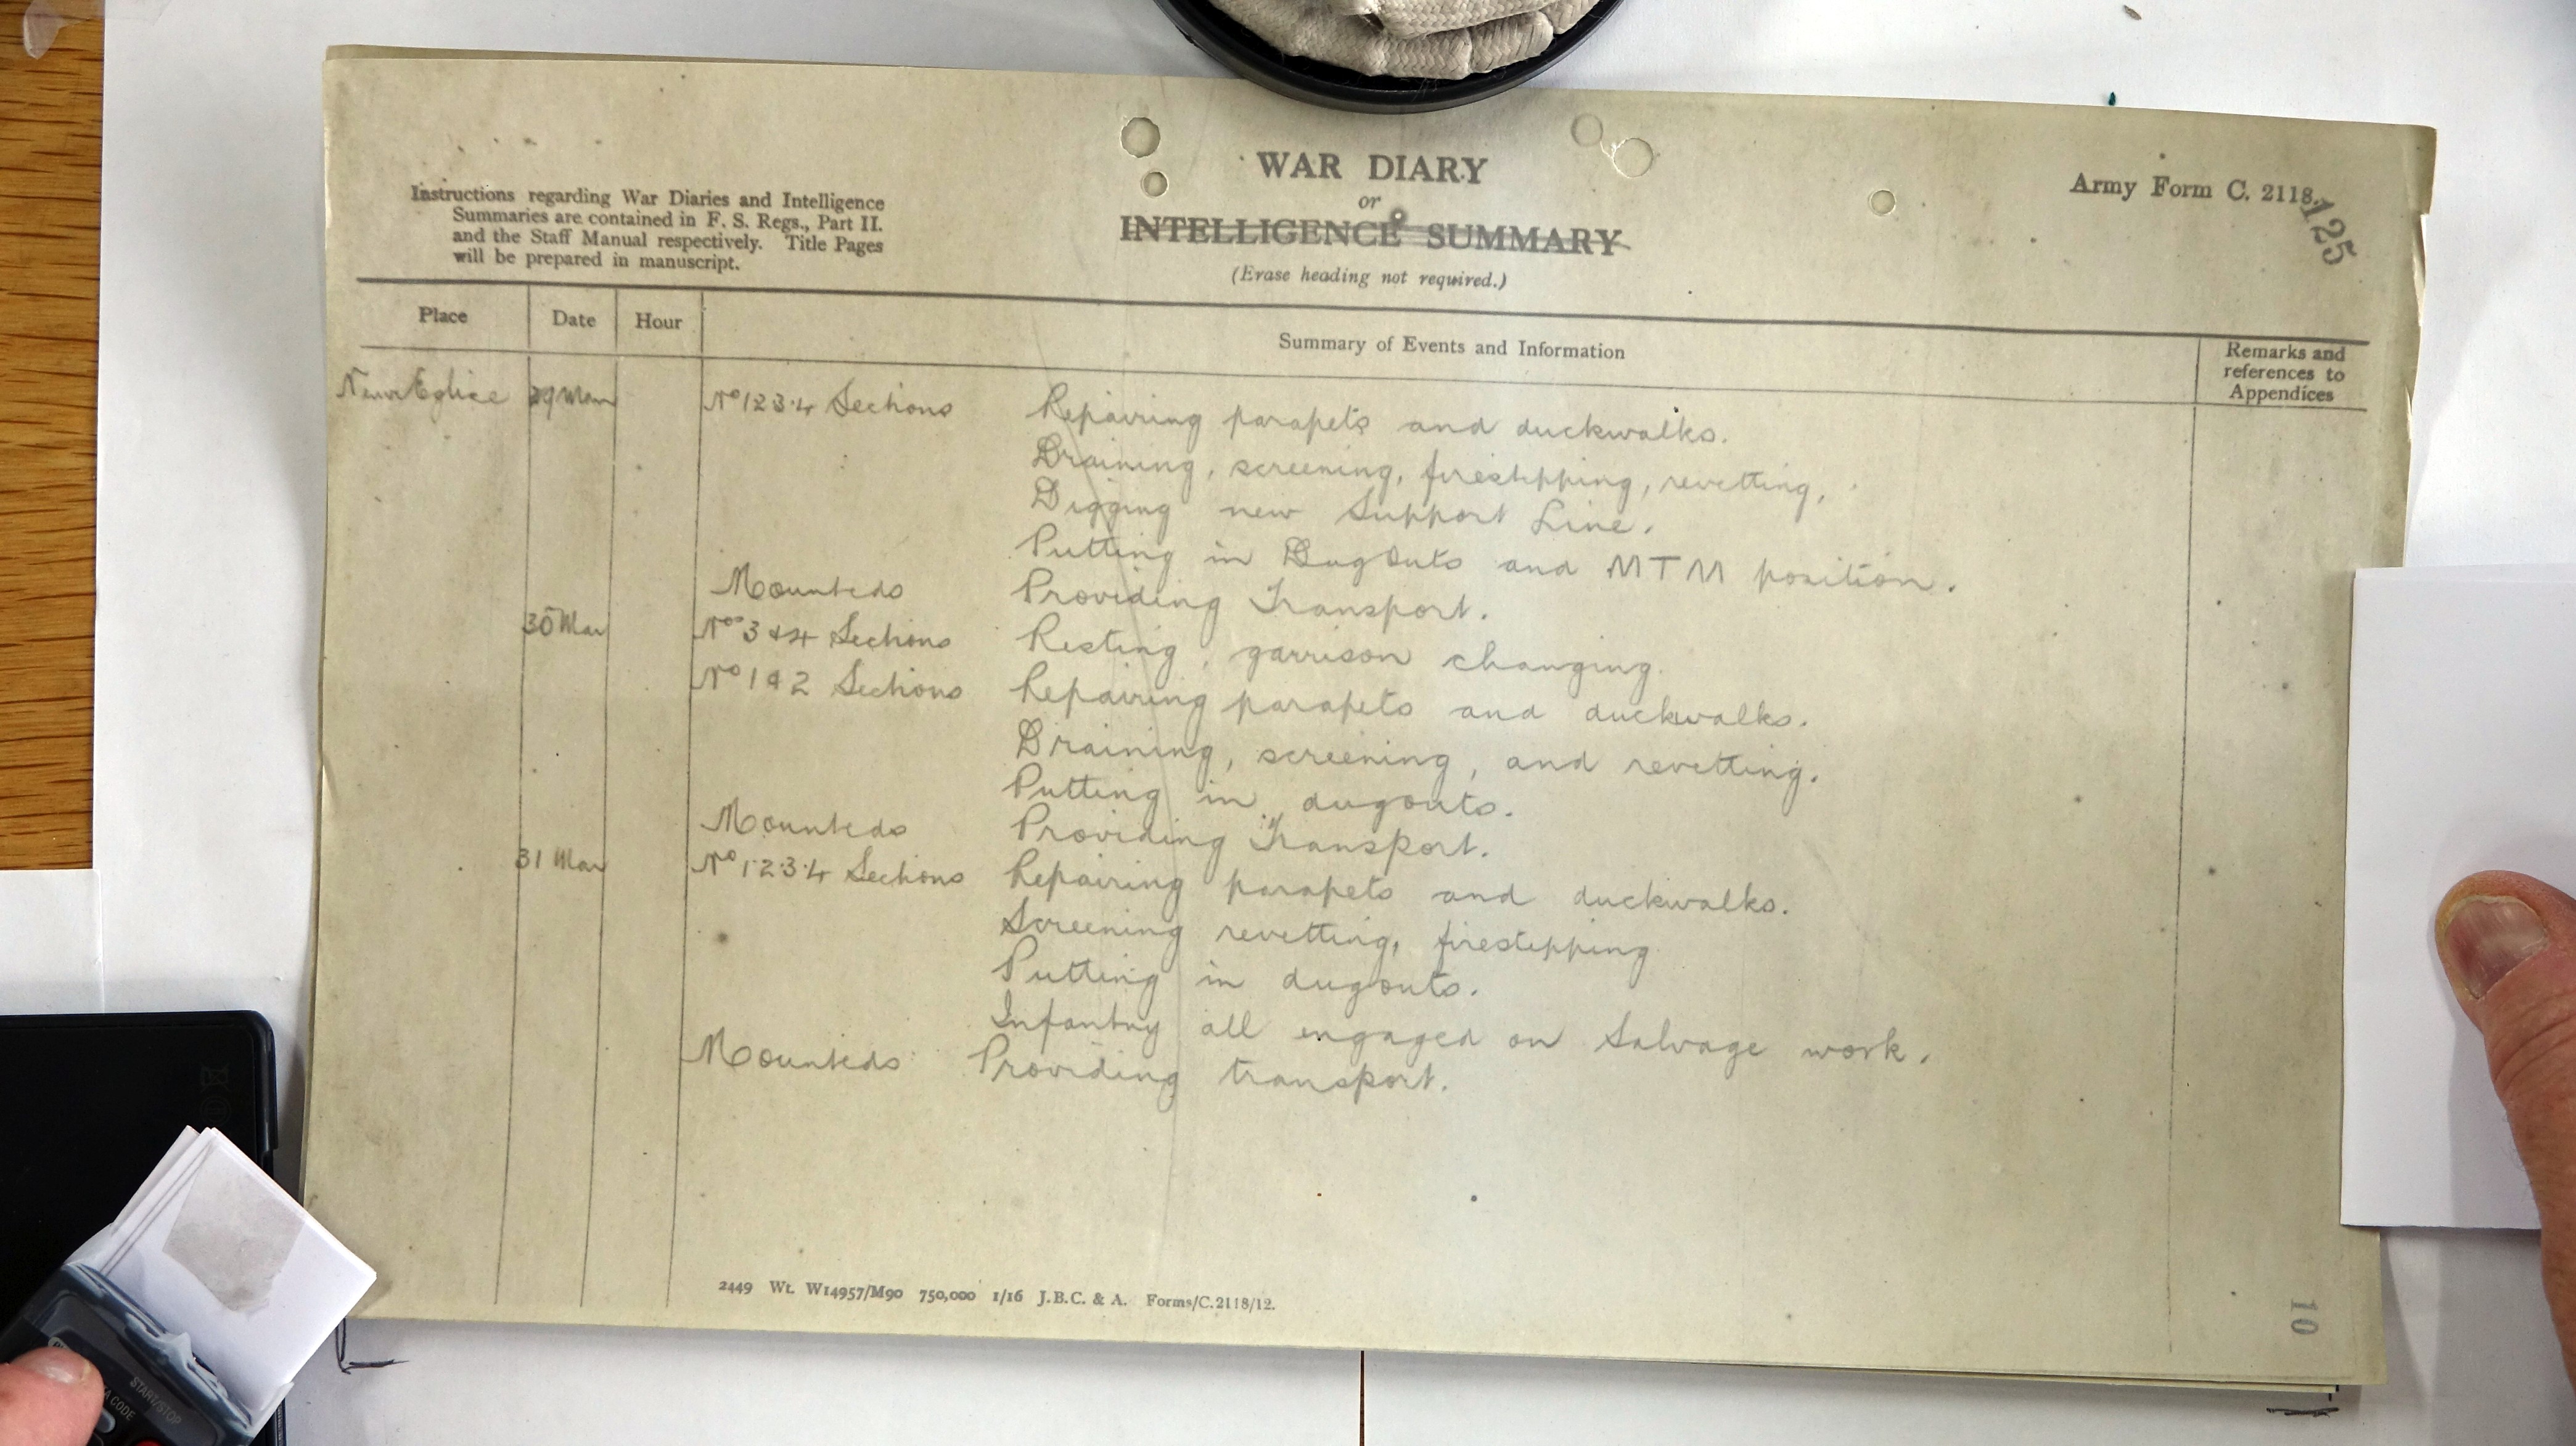 WAR DIARY
or
INTELLIGENCE SUMMARY
(Erase heading not required.)
Instructions regarding War Diaries and Intelligence
Summaries are contained in F. S. Regs., Part II.
and the Staff Manual respectively. Title Pages
will be prepared in manuscript.
Army Form C. 2118.
125
Place Date Hour Summary of Events and Information Remarks and
references to
Appendices
Neuve Eglise 29 Mar No 1 2 3·4 Sections Repairing parapets and duckwalks.
Draining, screening, firestepping, revetting,
Digging new Support Line.
Putting in DugOuts and MTM position.
Mounteds Providing Transport.
30 Mar Nos 3 & 4 Sections Resting, garrison changing.
No 1 & 2 Sections Repairing parapets and duckwalks.
Draining, screening, and revetting.
Putting in dugouts.
Mounteds Providing Transport.
31 Mar No 1·2·3·4 Sections Repairing parapets and duckwalks.
Screening revetting, firestepping
Putting in dugouts.
Infantry all engaged on Salvage work.
Mounteds Providing transport.
2449 Wt. W14957/M90 750,000 1/16 J.B.C. & A. Forms/C.2118/12.
10
START/STOP
CODE